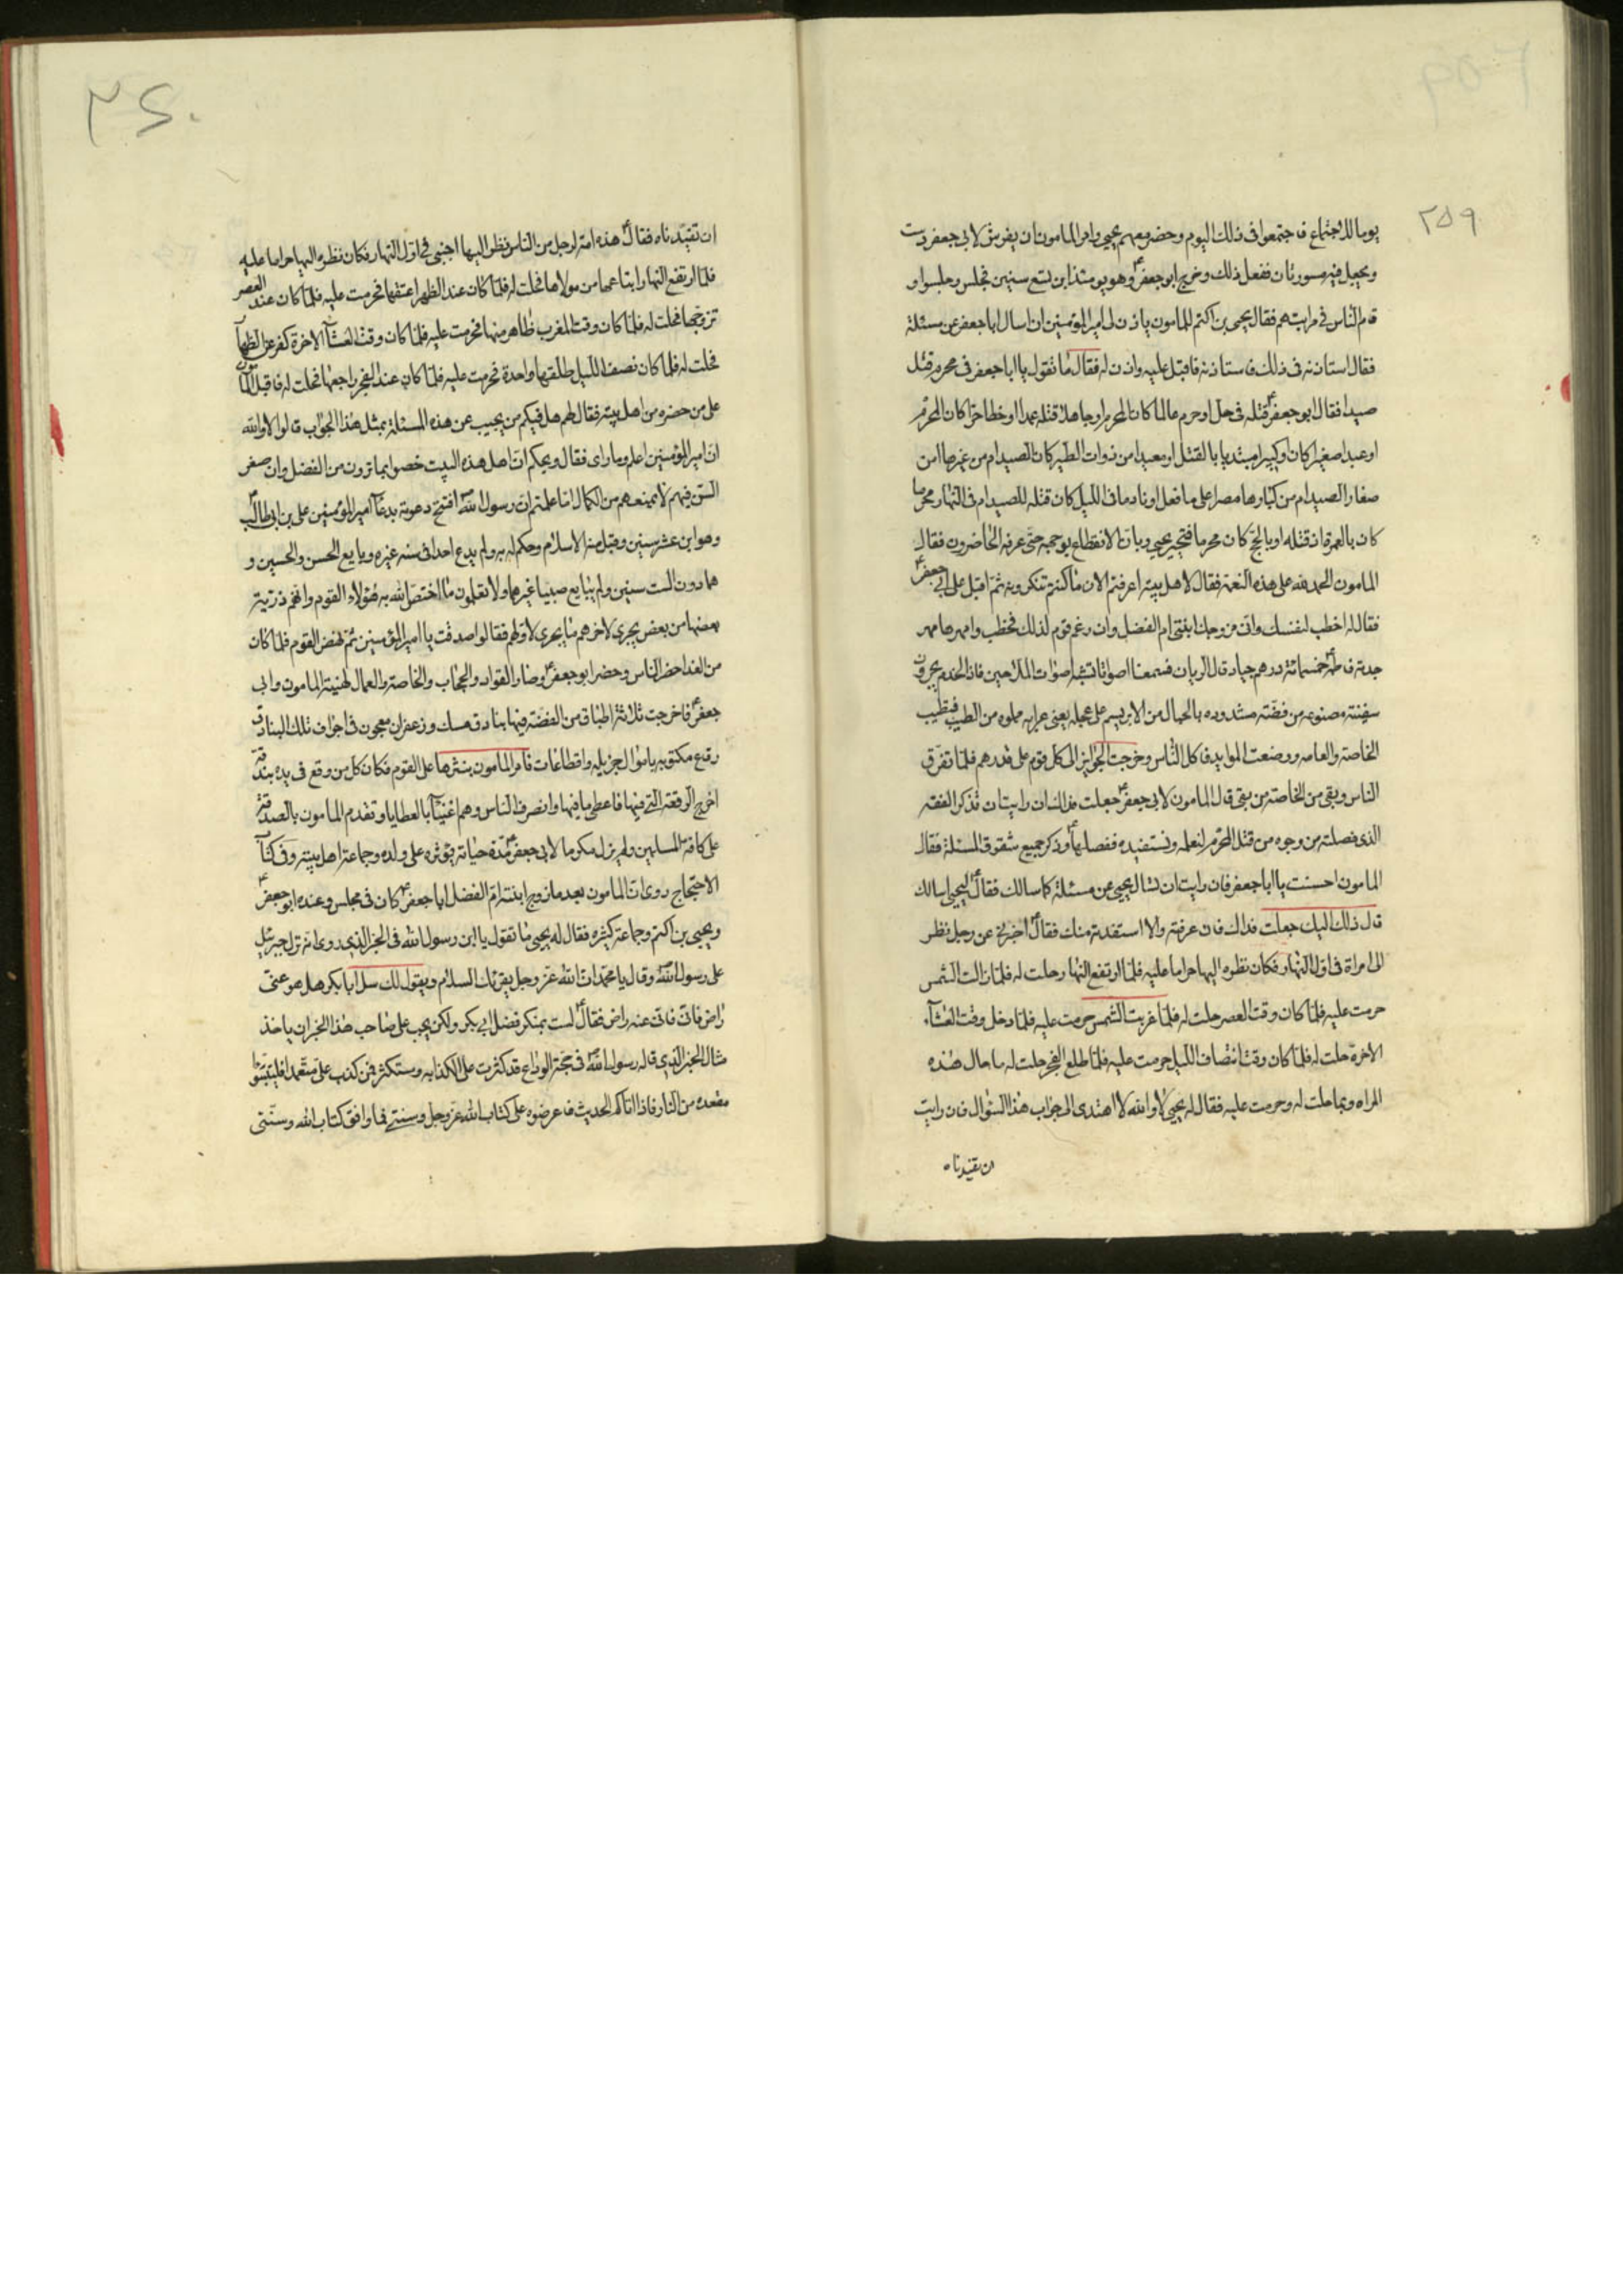 ٢٥٩
يوما للاجتماع فاجتمعوا فى ذلك اليوم وحضر معهم يحيى وامر المامون ان يفرش لابى جعفر دست
ويجعل فيه مسورتان ففعل ذلك وخرج ابو جعفرؑ وهو يومئذ ابن تسع سنين فجلس وجلسوا و
قام الناس فى مراتبهم فقال يحيى بن اكثم للمامون ياذن لى امير المؤمنين ان اسال ابا جعفر عن مسئلة
فقال استاذنه فى ذلك فاستاذنه فاقبل عليه واذن له فقال ما تقول يا ابا جعفر فى محرم قتل
صيدا فقال ابو جعفرؑ قتله فى حل او حرم عالما كان المحرم او جاهلا قتله عمدا او خطا حرا كان المحرم
او عبدا صغيرا كان او كبيرا مبتديا بالقتل او معيدا من ذوات الطير كان الصيد ام من غيرها من
صغار الصيد ام من كبارها مصرا على ما فعل او نادما فى الليل كان قتله للصيد ام فى النهار محرما
كان بالعمرة اذ قتله او بالحج كان محرما فتحير يحيى وبان الانقطاع بوجهه حتى عرفه الحاضرون فقال
المامون الحمد لله على هذه النعمة فقال لاهل بيته اعرفتم الان ما كنتم تنكرونه ثم اقبل على ابى جعفرؑ
فقال له اخطب لنفسك وانى مزوجك ابنتى ام الفضل وان رغم قوم لذلك فخطب وامهرها مهر
جدته فاطمةؑ خمسمائة درهم جياد قال الريان فسمعنا اصواتا تشبه اصوات الملاحين فاذا الخدم يجرون
سفينة مصنوعه من فضة مشدوده بالحبال من الابريسم على عجله يعنى عرابه مملوه من الطيب فطيب
الخاصة والعامه ووضعت الموايد فاكل الناس وخرجت الجوايز الى كل قوم على قدرهم فلما تفرق
الناس وبقى من الخاصة من بقى قال المامون لابى جعفرؑ جعلت فداك ان رايت ان تذكر الفقه
الذى فصلته من وجوه من قتل المحرم لنعلمه ونستفيده ففصلهاؑ وذكر جميع شقوق المسئلة فقال
المامون احسنت يا ابا جعفر فان رايت ان تسال يحيى عن مسئلة كما سالك فقالؑ ليحيى اسالك
قال ذلك اليك جعلت فداك فان عرفته والا استفدته منك فقالؑ اخبرنى عن رجل نظر
الى امراة فى اول النهار فكان نظره اليها حراما عليه فلما ارتفع النهار حلت له فلما زالت الشمس
حرمت عليه فلما كان وقت العصر حلت له فلما غربت الشمس حرمت عليه فلما دخل وقت العشآء
الاخرة حلت له فلما كان وقت انتصاف الليل حرمت عليه فلما طلع الفجر حلت له ما حال هذه
المراه وبما حلت له وحرمت عليه فقال له يحيى لا والله لا اهتدى الى جواب هذا السؤال فان رايت
ان تفيدناه
٢٦٠
ان تفيدناه فقالؑ هذه امة لرجل من الناس نظر اليها اجنبى فى اول النهار فكان نظره اليها حراما عليه
فلما ارتفع النهار ابتاعها من مولاها فحلت له فلما كان عند الظهر اعتقها فحرمت عليه فلما كان عند العصر
تزوجها فحلت له فلما كان وقت المغرب ظاهر منها فحرمت عليه فلما كان وقت العشآء الاخرة كفر عن الظهار
فحلت له فلما كان نصف الليل طلقها واحدة فحرمت عليه فلما كان عند الفجر راجعها فحلت له فاقبل المامون
على من حضره من اهل بيته فقال لهم هل فيكم من يجيب عن هذه المسئلة بمثل هذا الجواب قالوا لا والله
ان امير المؤمنين اعلم وما راى فقال ويحكم ان اهل هذه البيت خصوا بما ترون من الفضل وان صغر
السن فيهم لا يمنعهم من الكمال اما علمتم ان رسول اللهؐ افتتح دعوته بدعآء امير المؤمنين على بن ابى طالبؑ
وهو ابن عشر سنين وقبل منه الاسلام وحكم له به ولم يدع احدا فى سنه غيره وبايع الحسن والحسين و
هما دون الست سنين ولم يبايع صبيا غيرهما ولا تعلمون ما اختص الله به هؤلاء القوم وانهم ذرية
بعضها من بعض يجرى لاخرهم ما يجرى لاولهم فقالوا صدقت يا امير المؤمنين ثم نهض القوم فلما كان
من الغد احضر الناس وحضر ابو جعفرؑ وصار القواد والحجاب والخاصة والعمال لتهنية المامون وابى
جعفرؑ فاخرجت ثلاثة اطباق من الفضة فيها بنادق مسك وزعفران معجون فى اجواف تلك البنادق
رقاع مكتوبه باموال جزيله واقطاعات فامر المامون بنثرها على القوم فكان كل من وقع فى يده بندقة
اخرج الرقعة التى فيها فاعطى ما فيها وانصرف الناس وهم اغنيآء بالعطايا وتقدم المامون بالصدقة
على كافة المسلمين ولم يزل مكرما لابى جعفرؑ مدة حياته يؤثره على ولده وجماعة اهل بيته وفى كتاب
الاحتجاج روى ان المامون بعد ما زوج ابنته ام الفضل ابا جعفرؑ كان فى مجلس وعنده ابو جعفرؑ
ويحيى بن اكثم وجماعة كثيره فقال له يحيى ما تقول يا ابن رسول الله فى الخبر الذى روى انه نزل جبرئيل
على رسول اللهؐ وقال يا محمد ان الله عز وجل يقرئك السلام ويقول لك سل ابا بكر هل هو عنى
راض فانى عنه راض فقالؑ لست بمنكر فضل ابى بكر ولكن يجب على صاحب هذا الخبر ان ياخذ
مثال الخبر الذى قاله رسول اللهؐ فى حجة الوداع قد كثرت على الكذابه وستكثر فمن كذب على متعمدا فليتبوا
مقعده من النار فاذا اتاكم الحديث فاعرضوه على كتاب الله عز وجل وسنتى فما وافق كتاب الله وسنتى